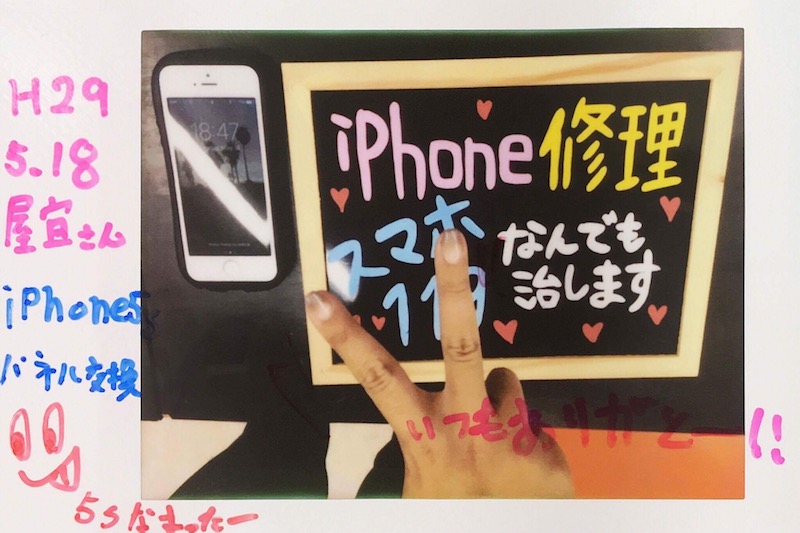 H29
5.18
屋宜さん
iPhone5s
パネル交換
5sなまったー
18:47
iPhone修理
スマホ
119
なんでも
治します
いつもありがとー!!